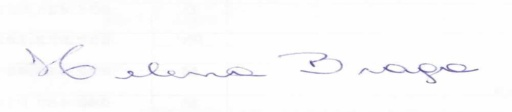 Helena Braga